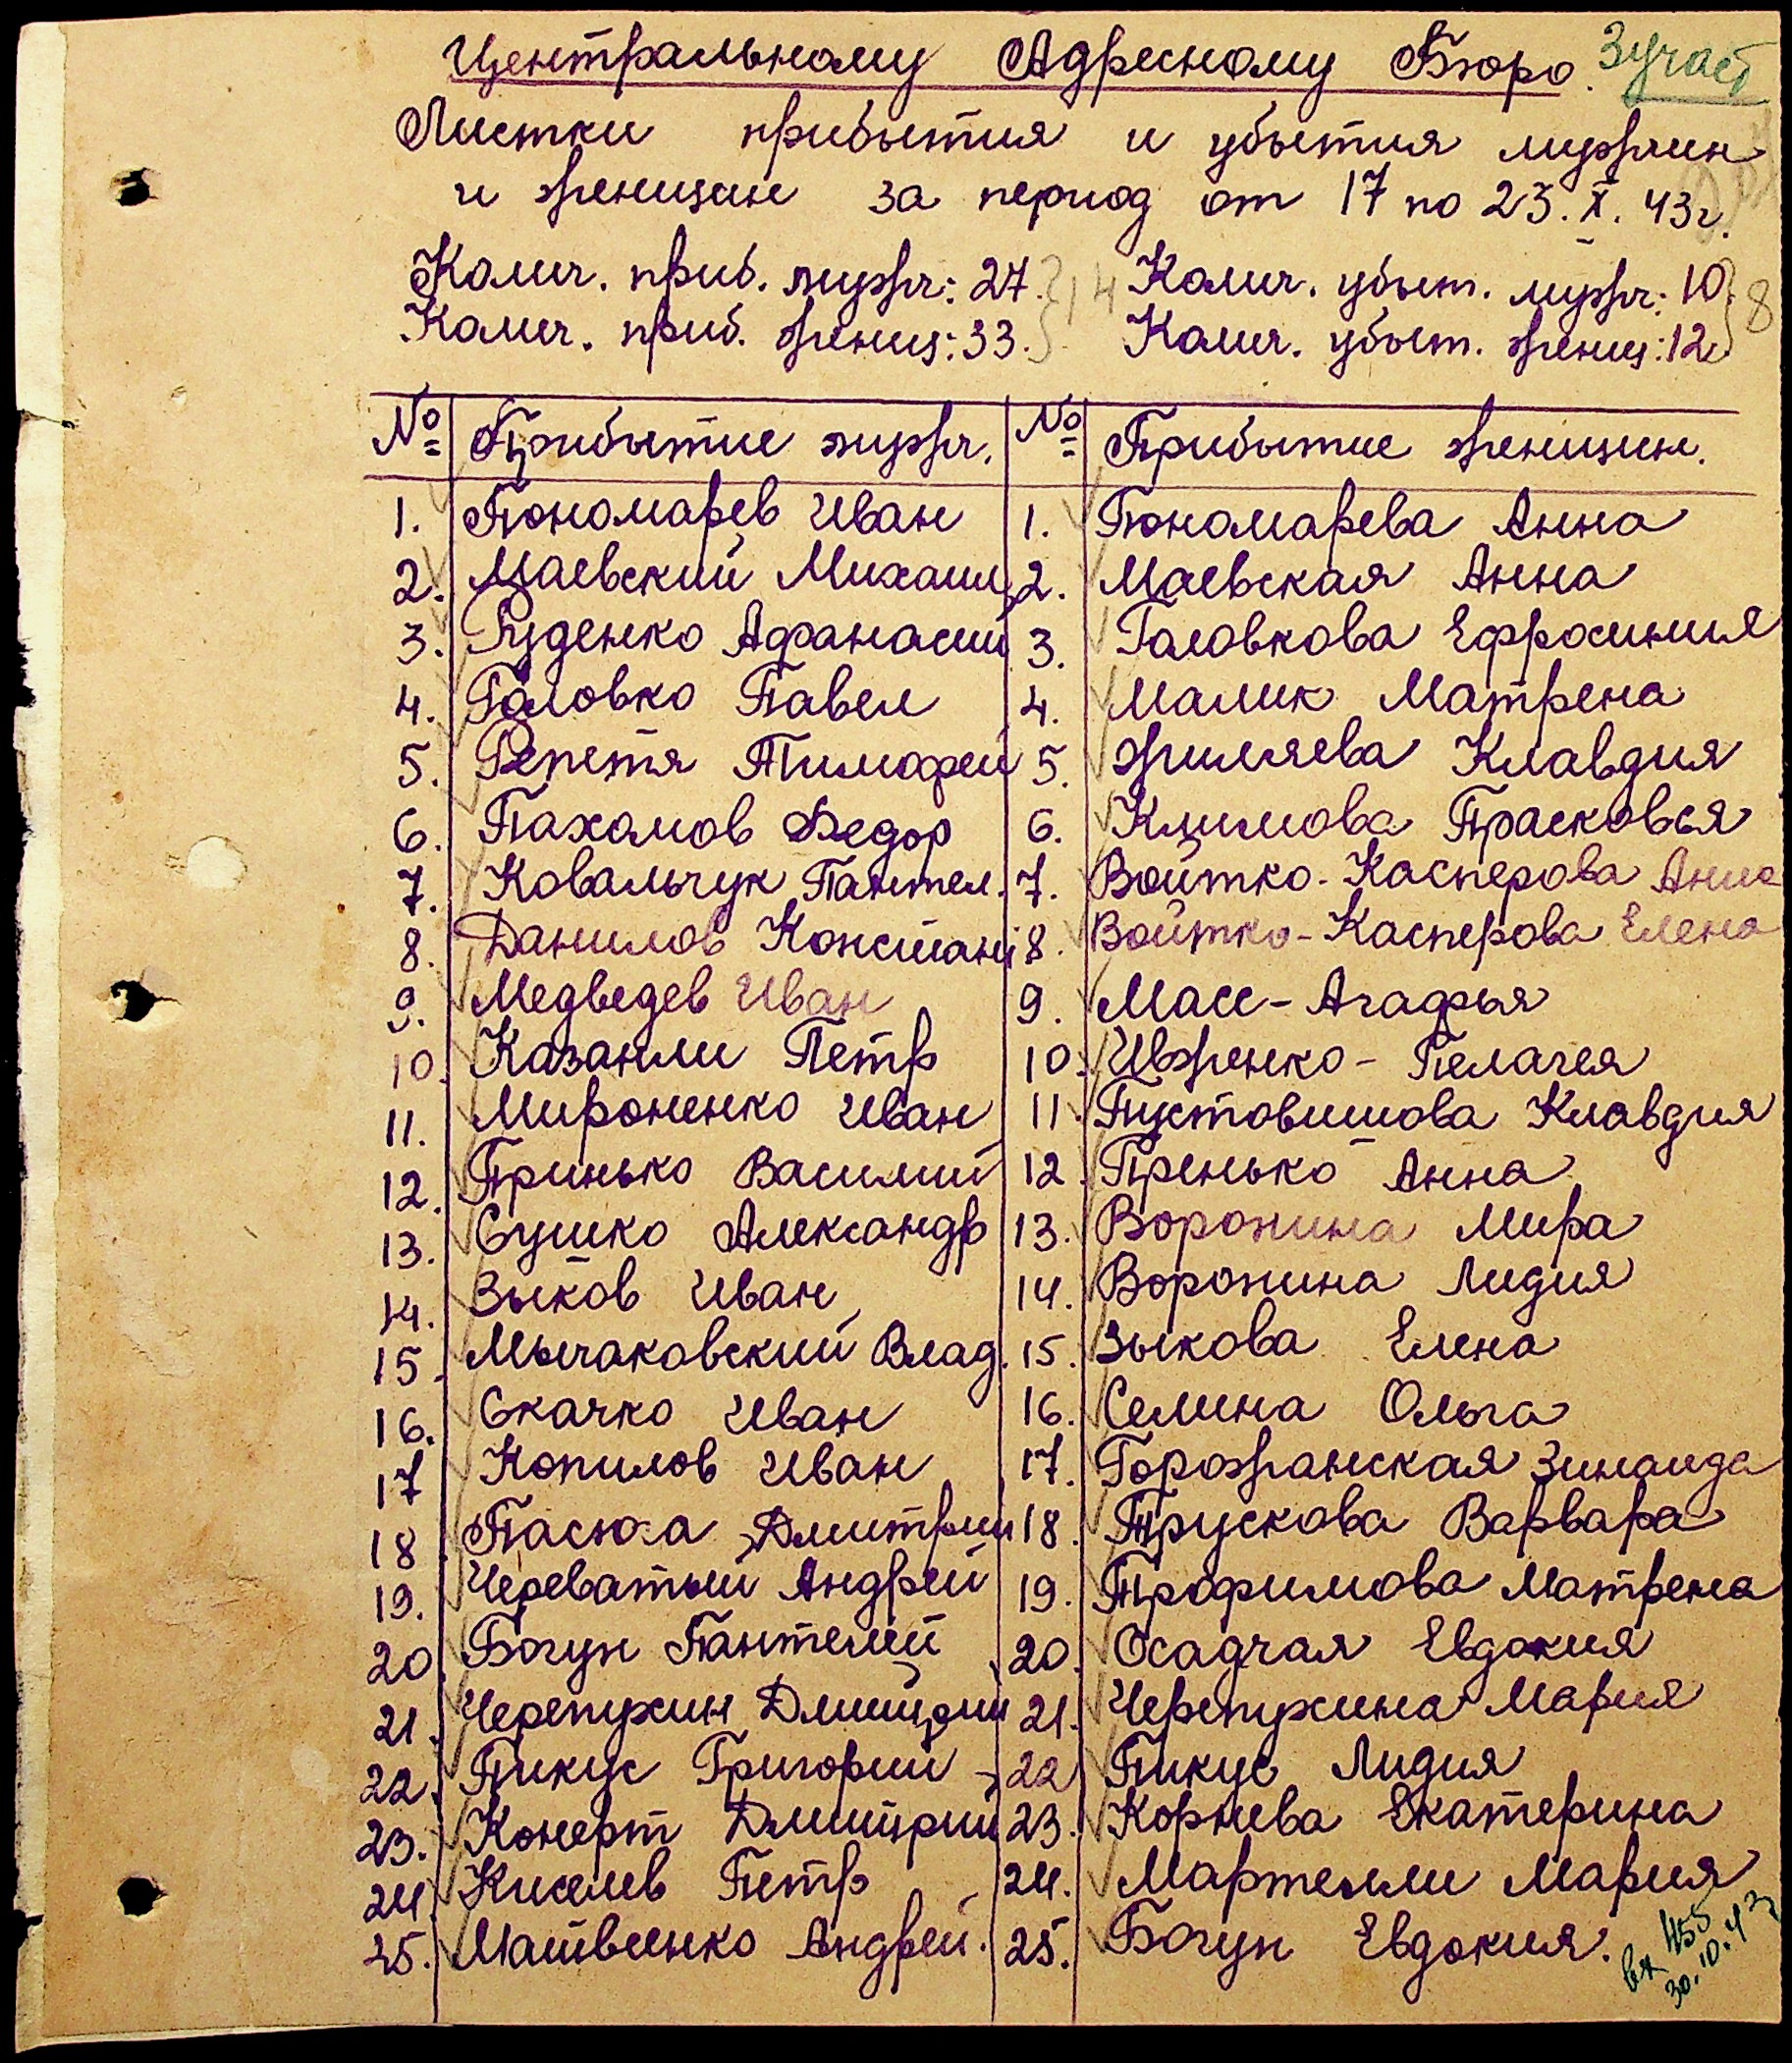 Центральному Адресному Бюро. 3 участ
Листки прибытия и убытия мужчин
и женщин за период от 17 по 23.X.43г.
Колич. приб. мужч: 27. Колич. убыт. мужч: 10.
Колич. приб. женщ: 33. Колич. убыт. женщ: 12. 8
№ Прибытие мужч. № Прибытие женщин.
1. Пономарев Иван 1. Пономарева Анна
2. Маевский Михаил 2. Маевская Анна
3. Руденко Афанасий 3. Головкова Ефросиния
4. Головко Павел 4. Малик Матрена
5. Репетя Тимофей 5. Жиляева Клавдия
6. Пахомов Федор 6. Климова Прасковья
7. Ковальчук Пантел. 7. Войтко-Касперова Анна
8. Данилов Констант 8. Войтко-Касперова Елена
9. Медведев Иван 9. Масс-Агафья
10. Казанли Петр 10. Ивженко-Пелагея
11. Мироненко Иван 11. Пустовишова Клавдия
12. Принько Василий 12 Пренько Анна
13. Сушко Александр 13. Воронина Мира
14. Зыков Иван 14. Воронина Лидия
15. Мычаковский Влад. 15. Зыкова Елена
16. Скачко Иван 16. Селина Ольга
17 Копилов Иван 17. Горожанская Зинаида
18 Пасюга Дмитрий 18. Трускова Варвара
19. Череватый Андрей 19. Трофимова Матрена
20. Богун Пантелий 20. Осадчая Евдокия
21. Черепухин Дмитрий 21. Черепухина Мария
22. Пикус Григорий 22 Пикус Лидия
23. Конерт Дмитрий 23. Корнева Екатерина
24. Киселев Петр 24. Мартелли Мария
25. Матвиенко Андрей. 25. Богун Евдокия.
вх 455
30.10.43